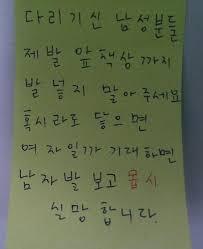 다리기신 남성분들
제발 앞책상까지
발 넣지 말아주세요
혹시라도 닿으면
여자일까 기대하면
남자발 보고 몹시
실망합니다.